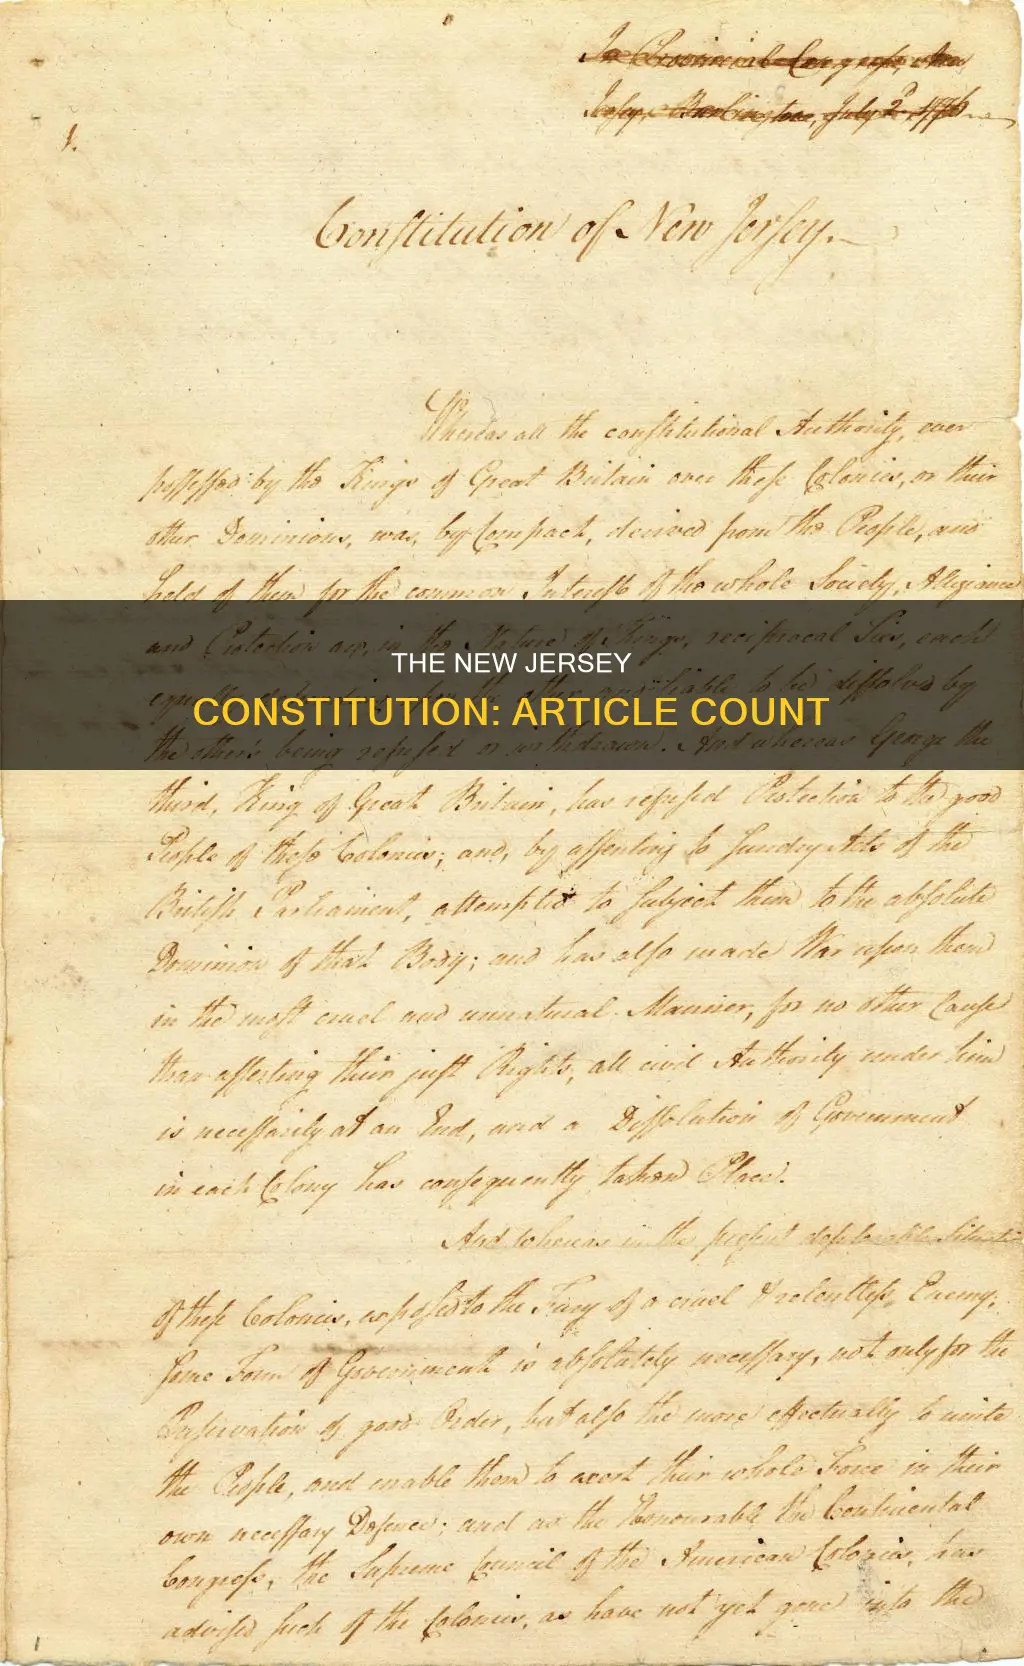 In Provincial Congress, New
Jersey, Burlington, July 2d 1776
1.
Constitution of New Jersey.
Whereas all the constitutional Authority, ever
possessed by the Kings of Great Britain over these Colonies, or their
other Dominions, was, by Compact, derived from the People, and
held of them for the common Interest of the whole Society, Allegiance
and Protection are, in the Nature of Things, reciprocal Ties, each
THE NEW JERSEY
equally depending upon the other and liable to be dissolved by
CONSTITUTION: ARTICLE COUNT
the other's being refused or withdrawn. And whereas George the
third, King of Great Britain, has refused Protection to the good
People of these Colonies; and, by assenting to sundry Acts of the
British Parliament, attempted to subject them to the absolute
Dominion of that Body; and has also made War upon them
in the most cruel and unnatural Manner, for no other Cause
than asserting their just Rights, all civil Authority under him
is necessarily at an End, and a Dissolution of Government
in each Colony has consequently taken Place.
And whereas in the present deplorable Situation
of these Colonies, exposed to the Fury of a cruel & relentless Enemy,
some Form of Government is absolutely necessary, not only for the
Preservation of good Order, but also the more effectually to unite
the People, and enable them to exert their whole Force in their
own necessary Defence; and as the Honourable the Continental
Congress, the Supreme Council of the American Colonies, has
advised such of the Colonies, as have not yet gone into the